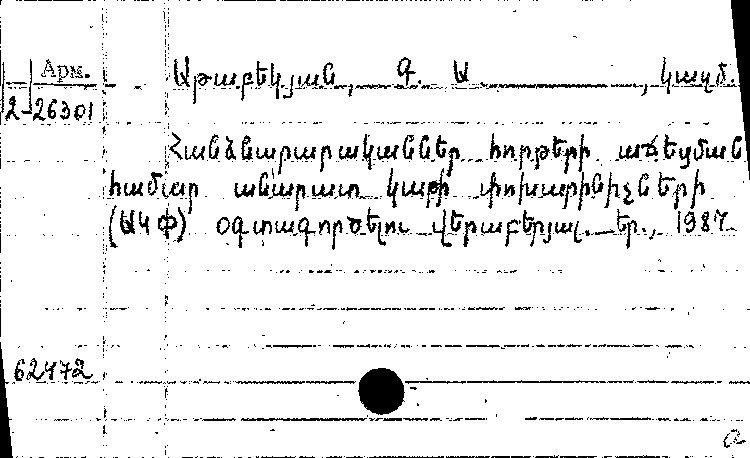 Арм.
2-26301
Աթաբեկյան, Գ. Ա., կազմ.
Հանձնարարականներ հորթերի աճեցման
համար անարատ կաթի փոխարինիչների
(ԱԿՓ) օգտագործելու վերաբերյալ. Եր., 1987
62472
a